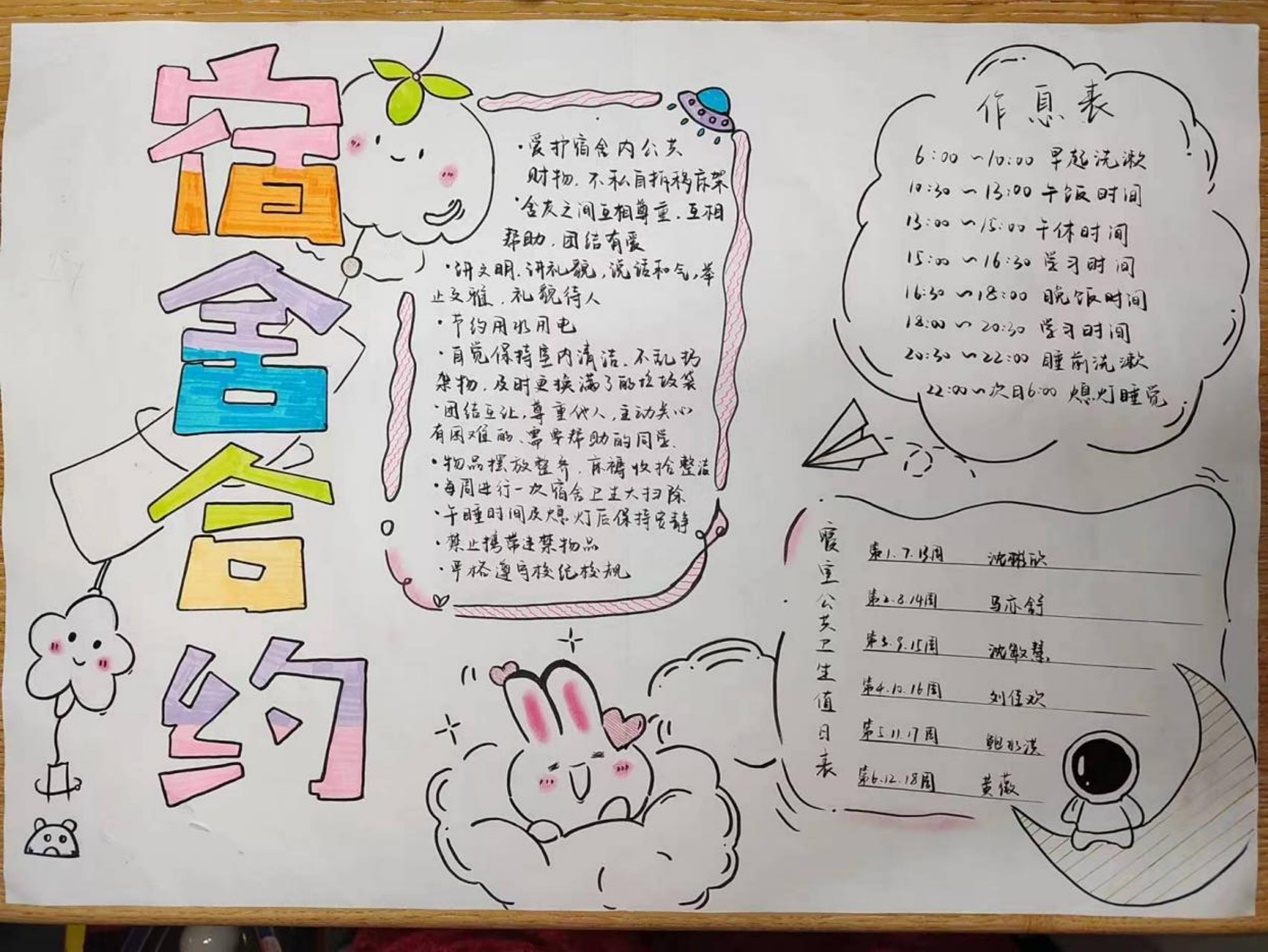 宿舍合约
·爱护宿舍内公共
财物，不私自拆移床架
·舍友之间互相尊重，互相
帮助，团结有爱
·讲文明，讲礼貌，说话和气，举
止文雅，礼貌待人
·节约用水用电
·自觉保持室内清洁，不乱扔
杂物，及时更换满了的垃圾袋
·团结互让，尊重他人，主动关心
有困难的、需要帮助的同学.
·物品摆放整齐，床褥收拾整洁
·每周进行一次宿舍卫生大扫除
·午睡时间及熄灯后保持安静
·禁止携带违禁物品
·严格遵守校纪校规
作息表
6:00~10:00 早起洗漱
10:30~13:00 午饭时间
13:00~15:00 午休时间
15:00~16:30 学习时间
16:30~18:00 晚饭时间
18:00~20:30 学习时间
20:30~22:00 睡前洗漱
22:00~次日6:00 熄灯睡觉
寝室公共卫生值日表
第1.7.13周
第2.8.14周 马亦舒
第3.9.15周 沈敏慧
第4.10.16周 刘佳欢
第5.11.17周
第6.12.18周 黄薇